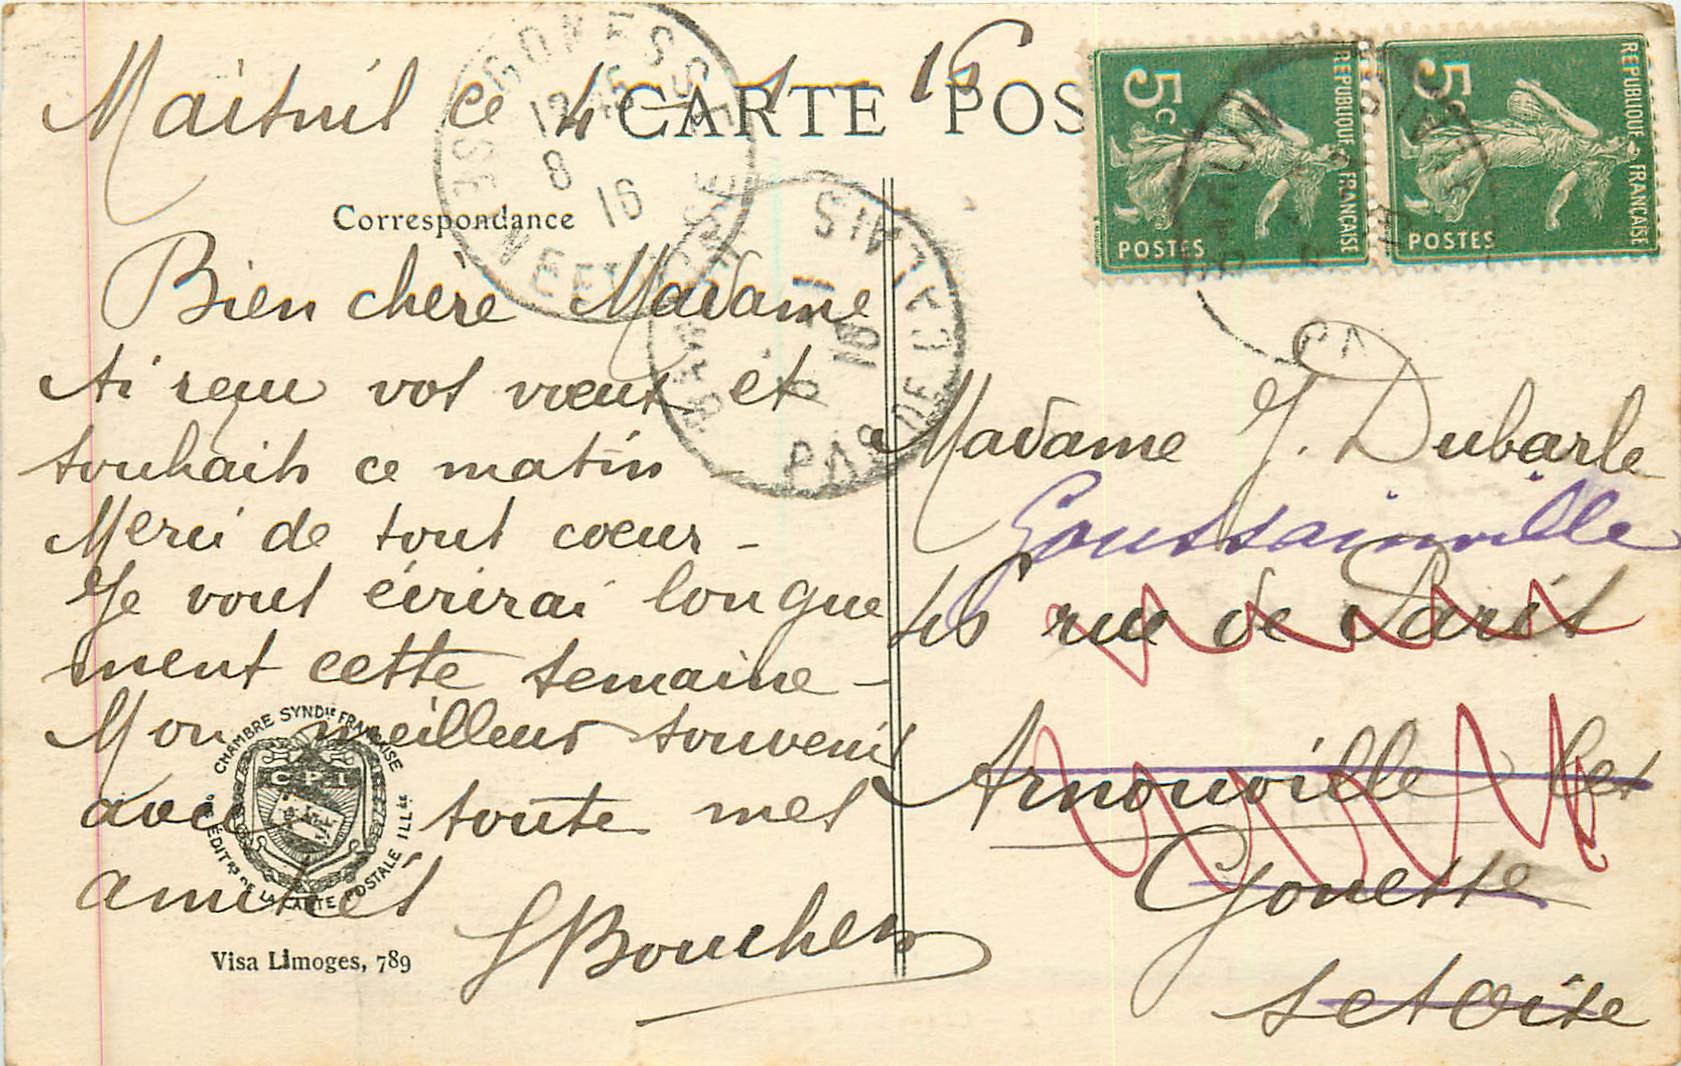 Maisnil ce 4 1 16
CARTE POS
Correspondance
Bien chère Madame
Ai reçu vos vœux et
souhaits ce matin
Merci de tout coeur -
Je vous écrirai longue
ment cette semaine -
Mon meilleur souvenir
avec toute mes
amitiés
Bouchez
CHAMBRE SYNDle FRANÇAISE
C.P.I.
DES EDITrs DE LA CARTE POSTALE ILLée
Visa Limoges, 789
GONESSE
12 45
8 1
16
SEINE ET OISE
BAVINCOURT
PAS DE CALAIS
16
5c
POSTES
REPUBLIQUE FRANÇAISE
5c
POSTES
REPUBLIQUE FRANÇAISE
Madame J. Dubarle
Goussainville
rue de Paris
Arnouville les
Gonesse
S et Oise